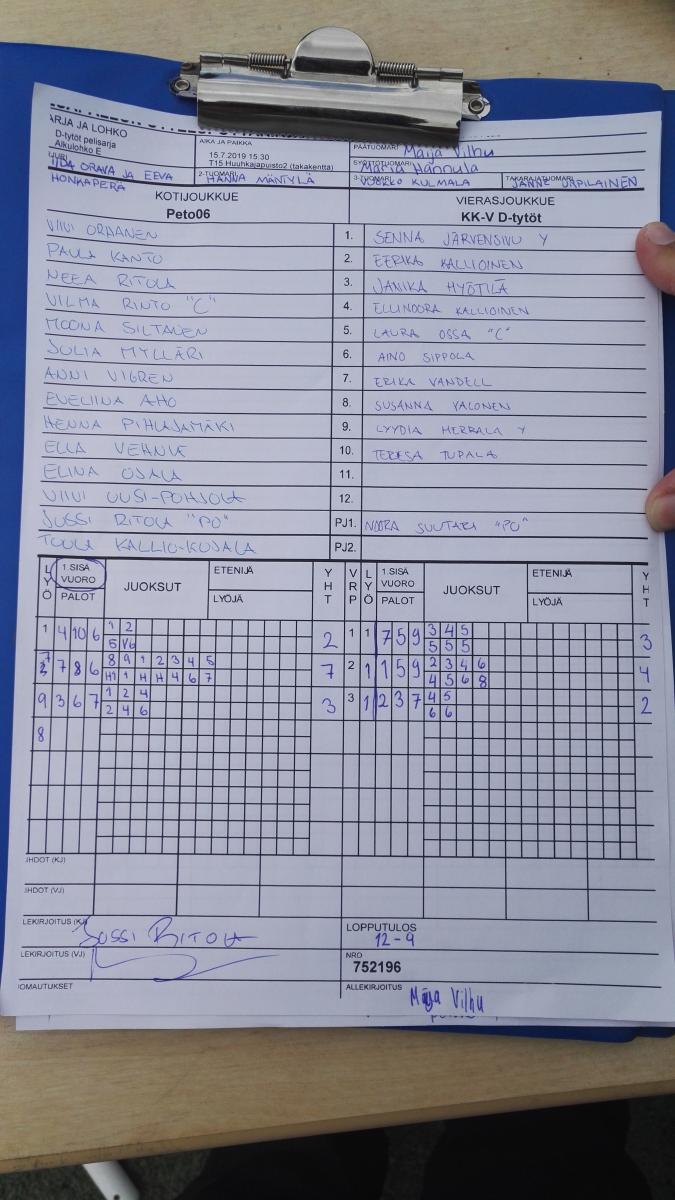 ARJA JA LOHKO
D-tytöt pelisarja
Alkulohko E
AIKA JA PAIKKA
15.7.2019 15:30
T15 Huuhkajapuisto2 (takakenttä)
PÄÄTUOMARI Maija Vilhu
SYÖTTÖTUOMARI Maria Hannula
IIDA ORAVA JA EEVA
HONKAPERÄ
2-TUOMARI HANNA MÄNTYLÄ
3-TUOMARI KULMALA
TAKARAJATUOMARI JANNE URPILAINEN
KOTIJOUKKUE
Peto06
VIERASJOUKKUE
KK-V D-tytöt
VIIVI ORPANEN 1. SENNA JÄRVENSIVU Y
PAULA KANTO 2. EERIKA KALLIOINEN
NEEA RITOLA 3. JANIKA HYÖTILÄ
VILMA RINTO "C" 4. ELLINOORA KALLIOINEN
MOONA SILTANEN 5. LAURA OSSA "C"
JULIA MYLLÄRI 6. AINO SIPPOLA
ANNI VIGREN 7. ERIKA VANDELL
EVELIINA AHO 8. SUSANNA VALONEN
HENNA PIHLAJAMÄKI 9. LYYDIA HERRALA Y
ELLA VEHNIÄ 10. TERESA TUPALA
ELINA OJALA 11.
VIIVI UUSI-POHJOLA 12.
JUSSI RITOLA "PO" PJ1. NOORA SUUTARI "PO"
TUULA KALLIO-KUJALA PJ2.
LYÖ 1.SISÄ VUORO PALOT JUOKSUT ETENIJÄ LYÖJÄ YHT VRP LYÖ 1.SISÄ VUORO PALOT JUOKSUT ETENIJÄ LYÖJÄ YHT
1 4 10 6 1 2 2 1 1 7 5 9 3 4 5 3
5 V6 5 5 5
7 7 8 6 8 9 1 2 3 4 5 7 2 1 1 5 9 2 3 4 6 4
H1 1 H H 4 6 7 4 5 6 8
9 3 6 7 1 2 4 3 3 1 2 3 7 4 5 2
2 4 6 6 6
8
JHDOT (KJ)
JHDOT (VJ)
LEKIRJOITUS (KJ) JUSSI RITOLA
LOPPUTULOS
12-9
LEKIRJOITUS (VJ)
NRO
752196
OMAUTUKSET
ALLEKIRJOITUS Maija Vilhu